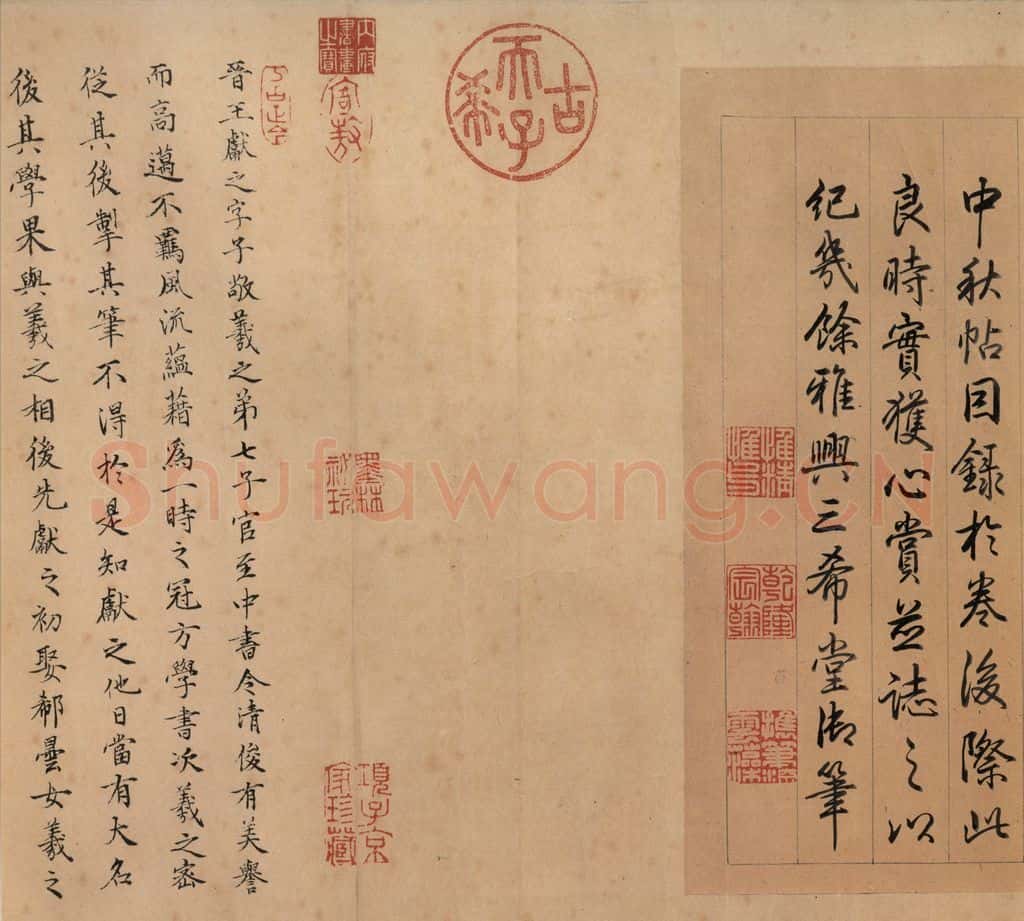 中秋帖囙録於卷後際此
良時實獲心賞並誌之以
紀幾餘雅興三希堂御筆
乾隆宸翰
古希天子
内府書畫之寶
寄敖
墨林祕玩
項子京家珍藏
晉王獻之字子敬羲之第七子官至中書令清俊有美譽
而高邁不羈風流蘊藉爲一時之冠方學書次羲之密
從其後掣其筆不得於是知獻之他日當有大名
後其學果與羲之相後先獻之初娶郗曇女羲之
Shufawang.CN